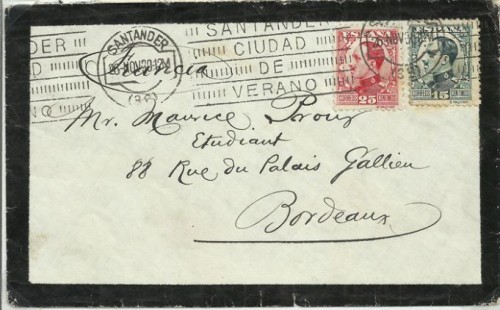 SANTANDER
CIUDAD
DE
VERANO
SANTANDER
Francia
CORREOS 25 CENTIMOS
CORREOS 15 CENTIMOS
Mr. Maurice
Etudiant
88 Rue du Palais Gallien
Bordeaux